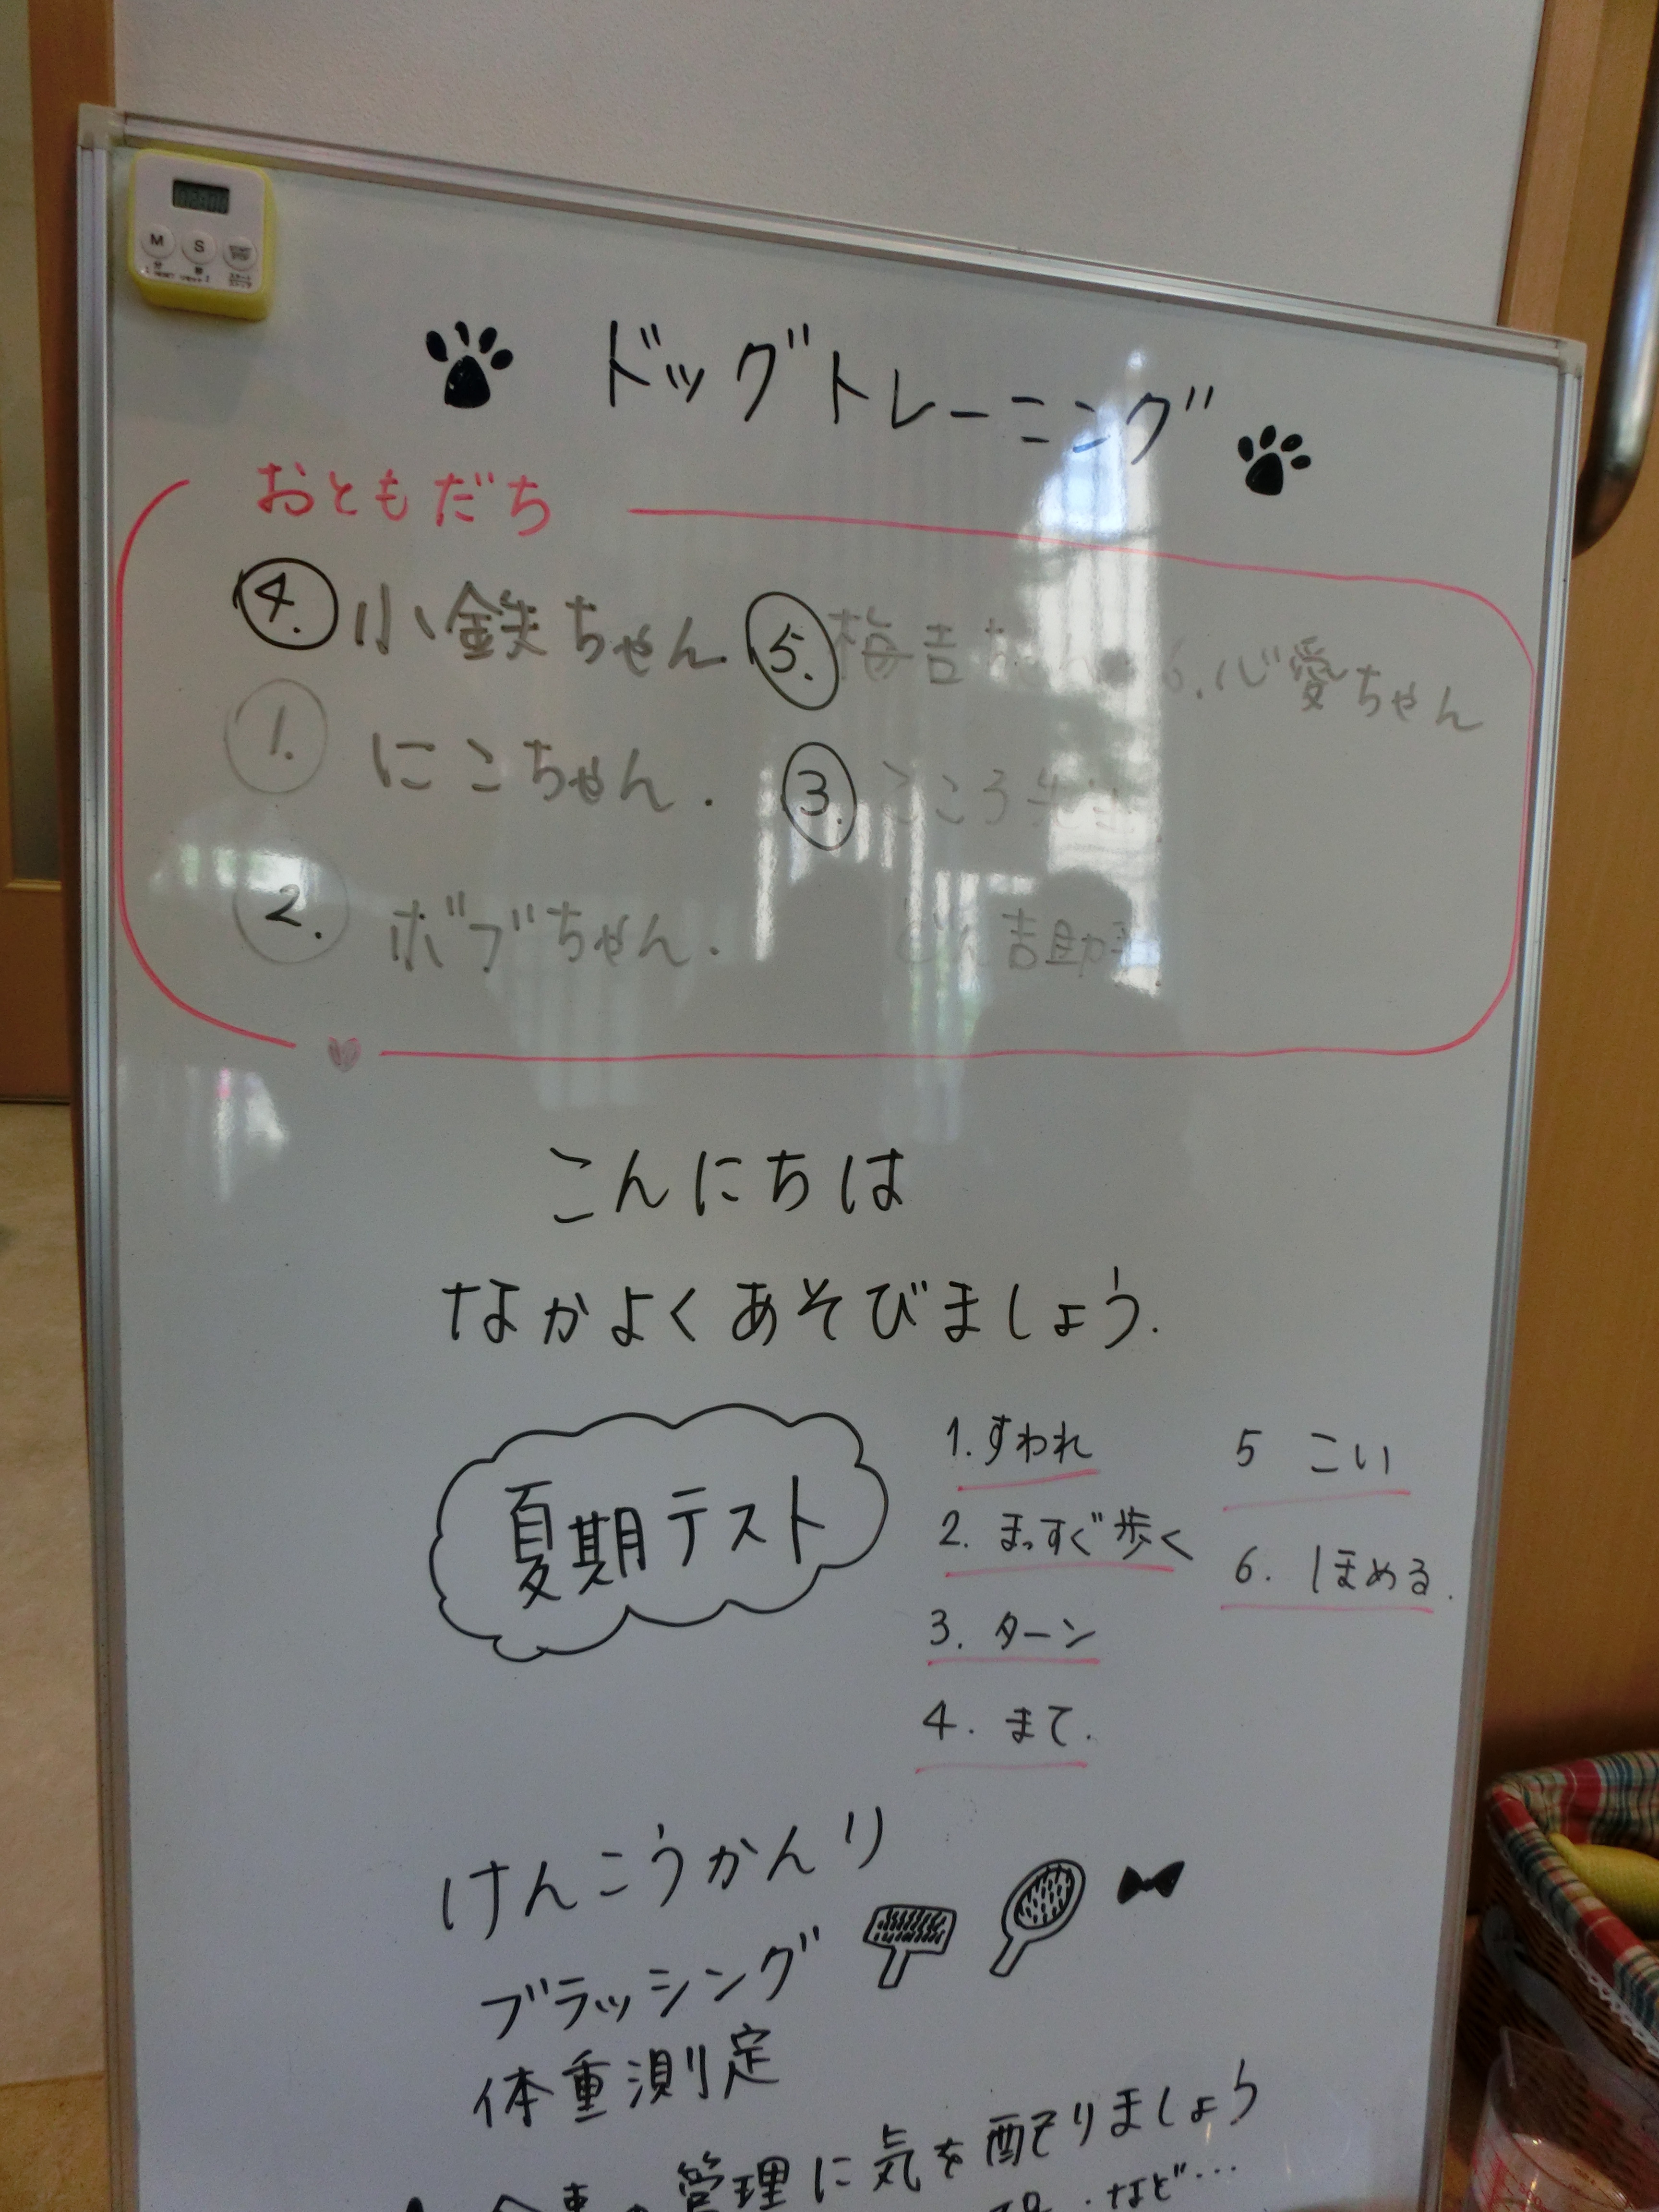 M S
ドッグトレーニング
おともだち
4. 小鉄ちゃん 5. 梅吉ちゃん 6. 心愛ちゃん
1. にこちゃん. 3. こころ先生
2. ボブちゃん. どん吉助手
こんにちは
なかよくあそびましょう.
夏期テスト
1. すわれ 5 こい
2. まっすぐ歩く 6. ほめる.
3. ターン
4. まて.
けんこうかんり
ブラッシング
体重測定
管理に気を配りましょう
など…